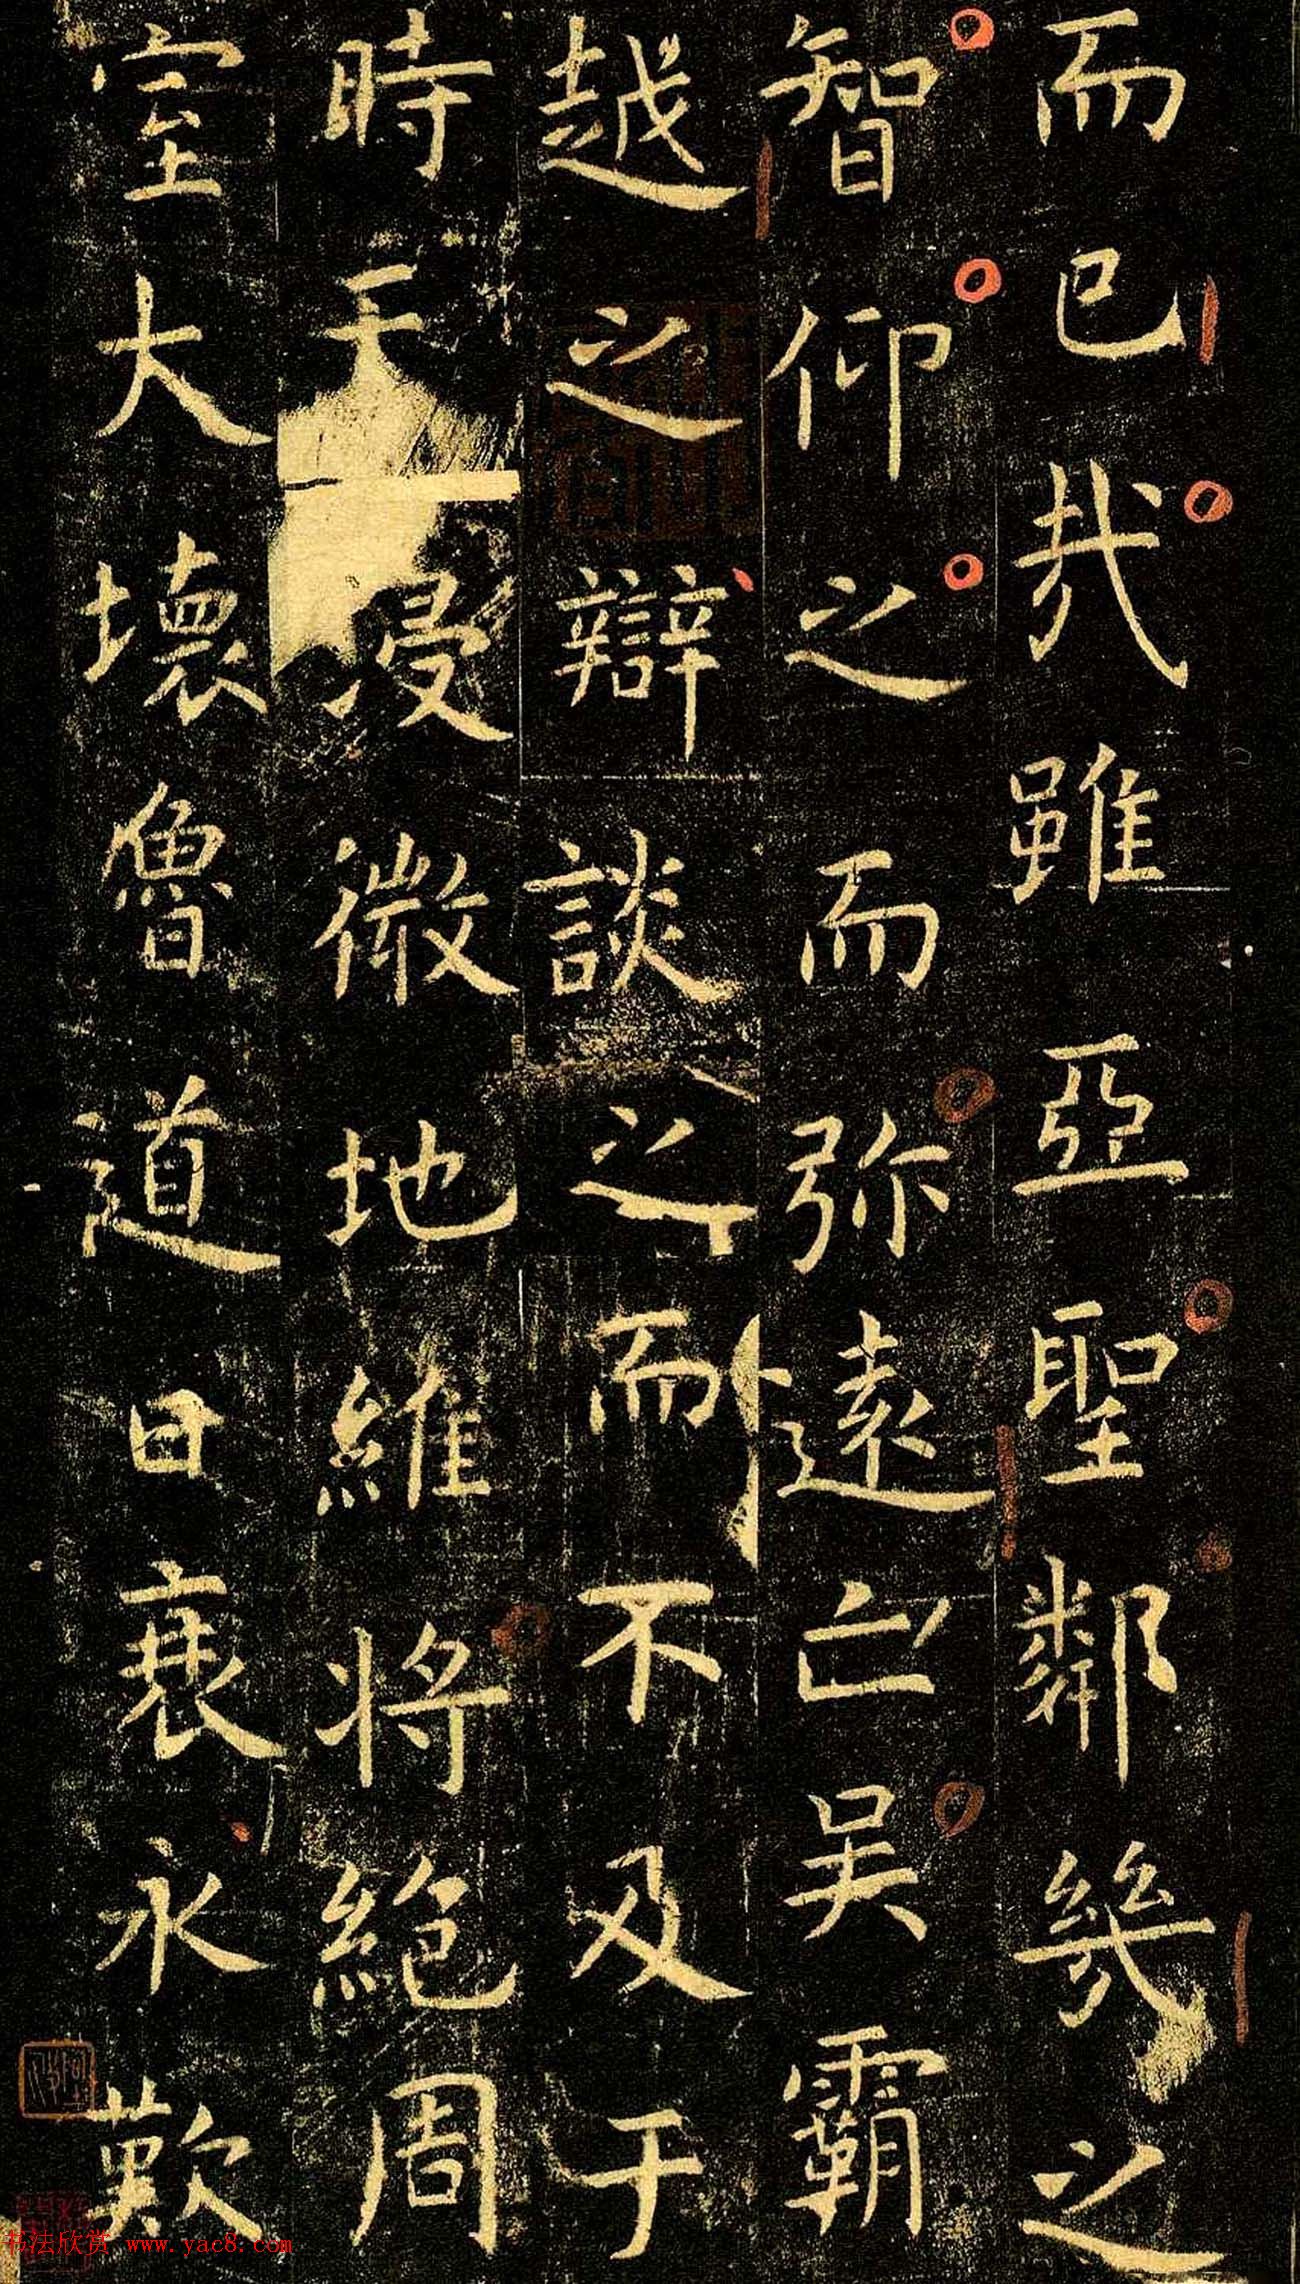 而已哉雖亞聖鄰幾之
智仰之而弥遠亡吴霸
越之辯談之而不及于
時天浸微地維将絶周
室大壞魯道日衰永歎
书法欣赏 www.yac8.com